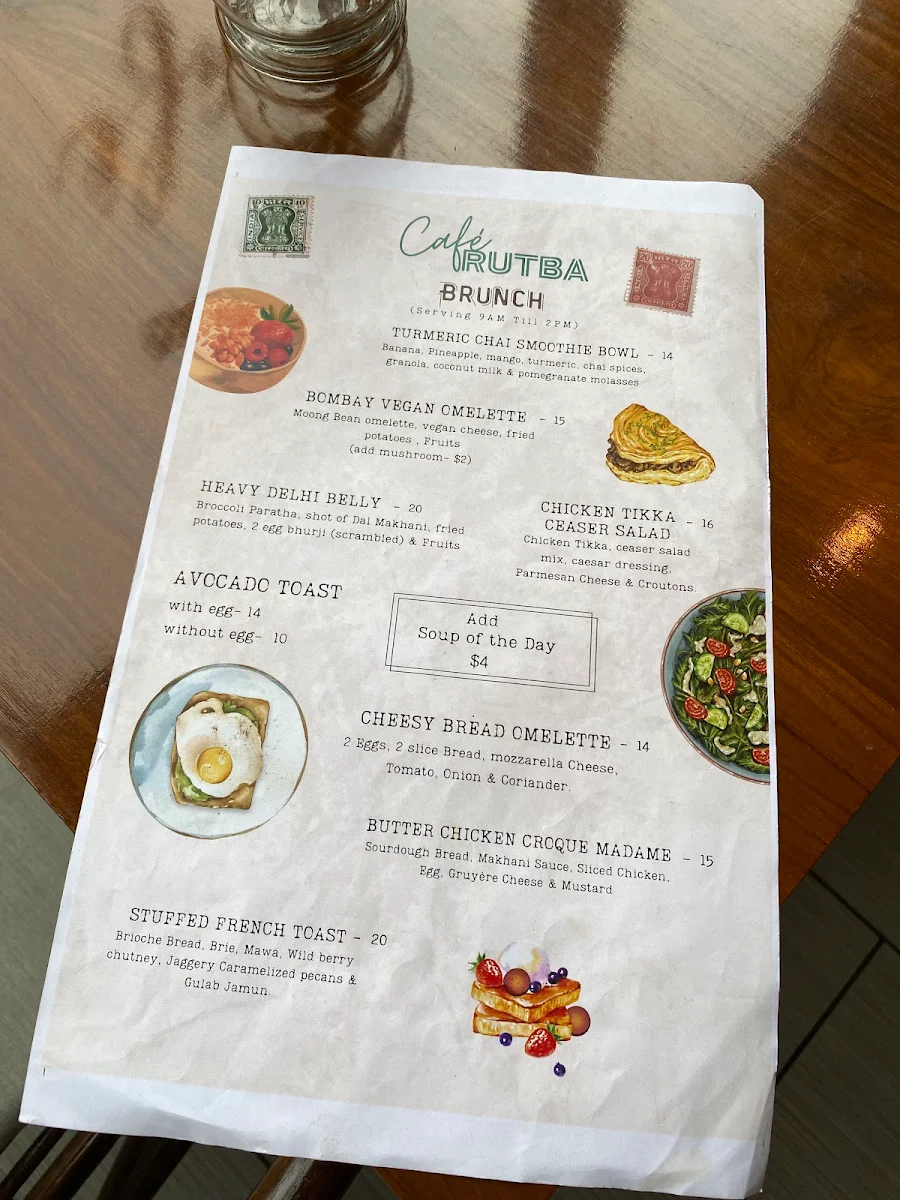 Café
RUTBA
BRUNCH
(Serving 9AM Till 2PM)
TURMERIC CHAI SMOOTHIE BOWL - 14
Banana, Pineapple, mango, turmeric, chai spices,
granola, coconut milk & pomegranate molasses
BOMBAY VEGAN OMELETTE - 15
Moong Bean omelette, vegan cheese, fried
potatoes , Fruits
(add mushroom- $2)
HEAVY DELHI BELLY - 20
Broccoli Paratha, shot of Dal Makhani, fried
potatoes, 2 egg bhurji (scrambled) & Fruits
CHICKEN TIKKA - 16
CEASER SALAD
Chicken Tikka, ceaser salad
mix, caesar dressing,
Parmesan Cheese & Croutons.
AVOCADO TOAST
with egg- 14
without egg- 10
Add
Soup of the Day
$4
CHEESY BREAD OMELETTE - 14
2 Eggs, 2 slice Bread, mozzarella Cheese,
Tomato, Onion & Coriander.
BUTTER CHICKEN CROQUE MADAME - 15
Sourdough Bread, Makhani Sauce, Sliced Chicken,
Egg, Gruyère Cheese & Mustard
STUFFED FRENCH TOAST - 20
Brioche Bread, Brie, Mawa, Wild berry
chutney, Jaggery Caramelized pecans &
Gulab Jamun.
10 भारत 10
INDIA
20 भारत 20